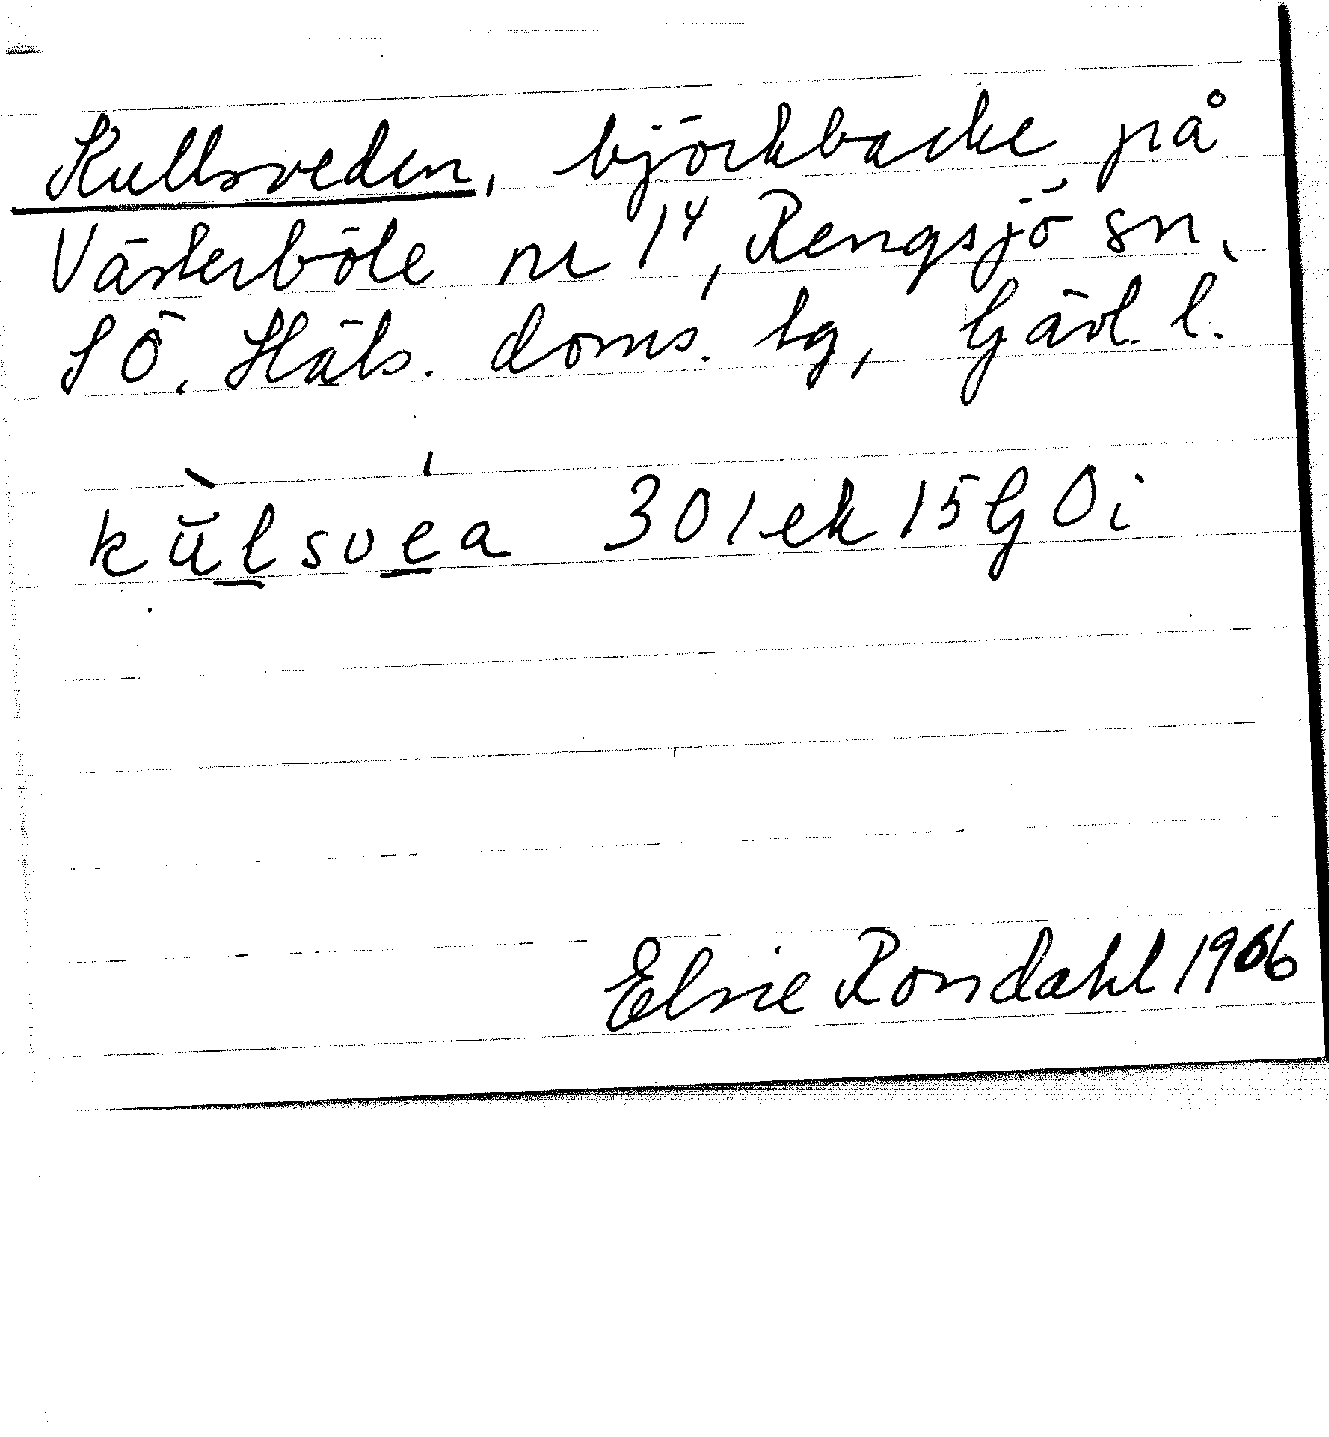 Kullsveden, björkbacke på
Västerböle nr 1⁴, Rengsjö sn,
SÖ. Häls. doms. lg, Gävl. l.
kǜlsvéa 301ek15GOi
Elsie Rondahl 1966